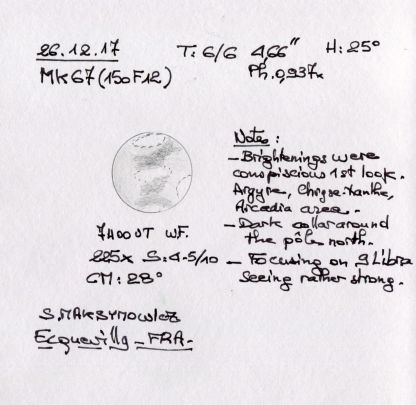 26.12.17 T: 6/6 4,66" H: 25°
MK67 (150F12) Ph. 0,937x
Notes :
- Brightenings were
conspiscious 1st look.
Argyre, Chryse-Xanthe,
Arcadia area.
- Dark collar around
the pôle north.
- Focusing on 9 Libra
seeing rather strong.
7H00UT WF.
225x S:4-5/10
CM: 28°
S.MAKSYMOWICZ
Ecquevilly - FRA-